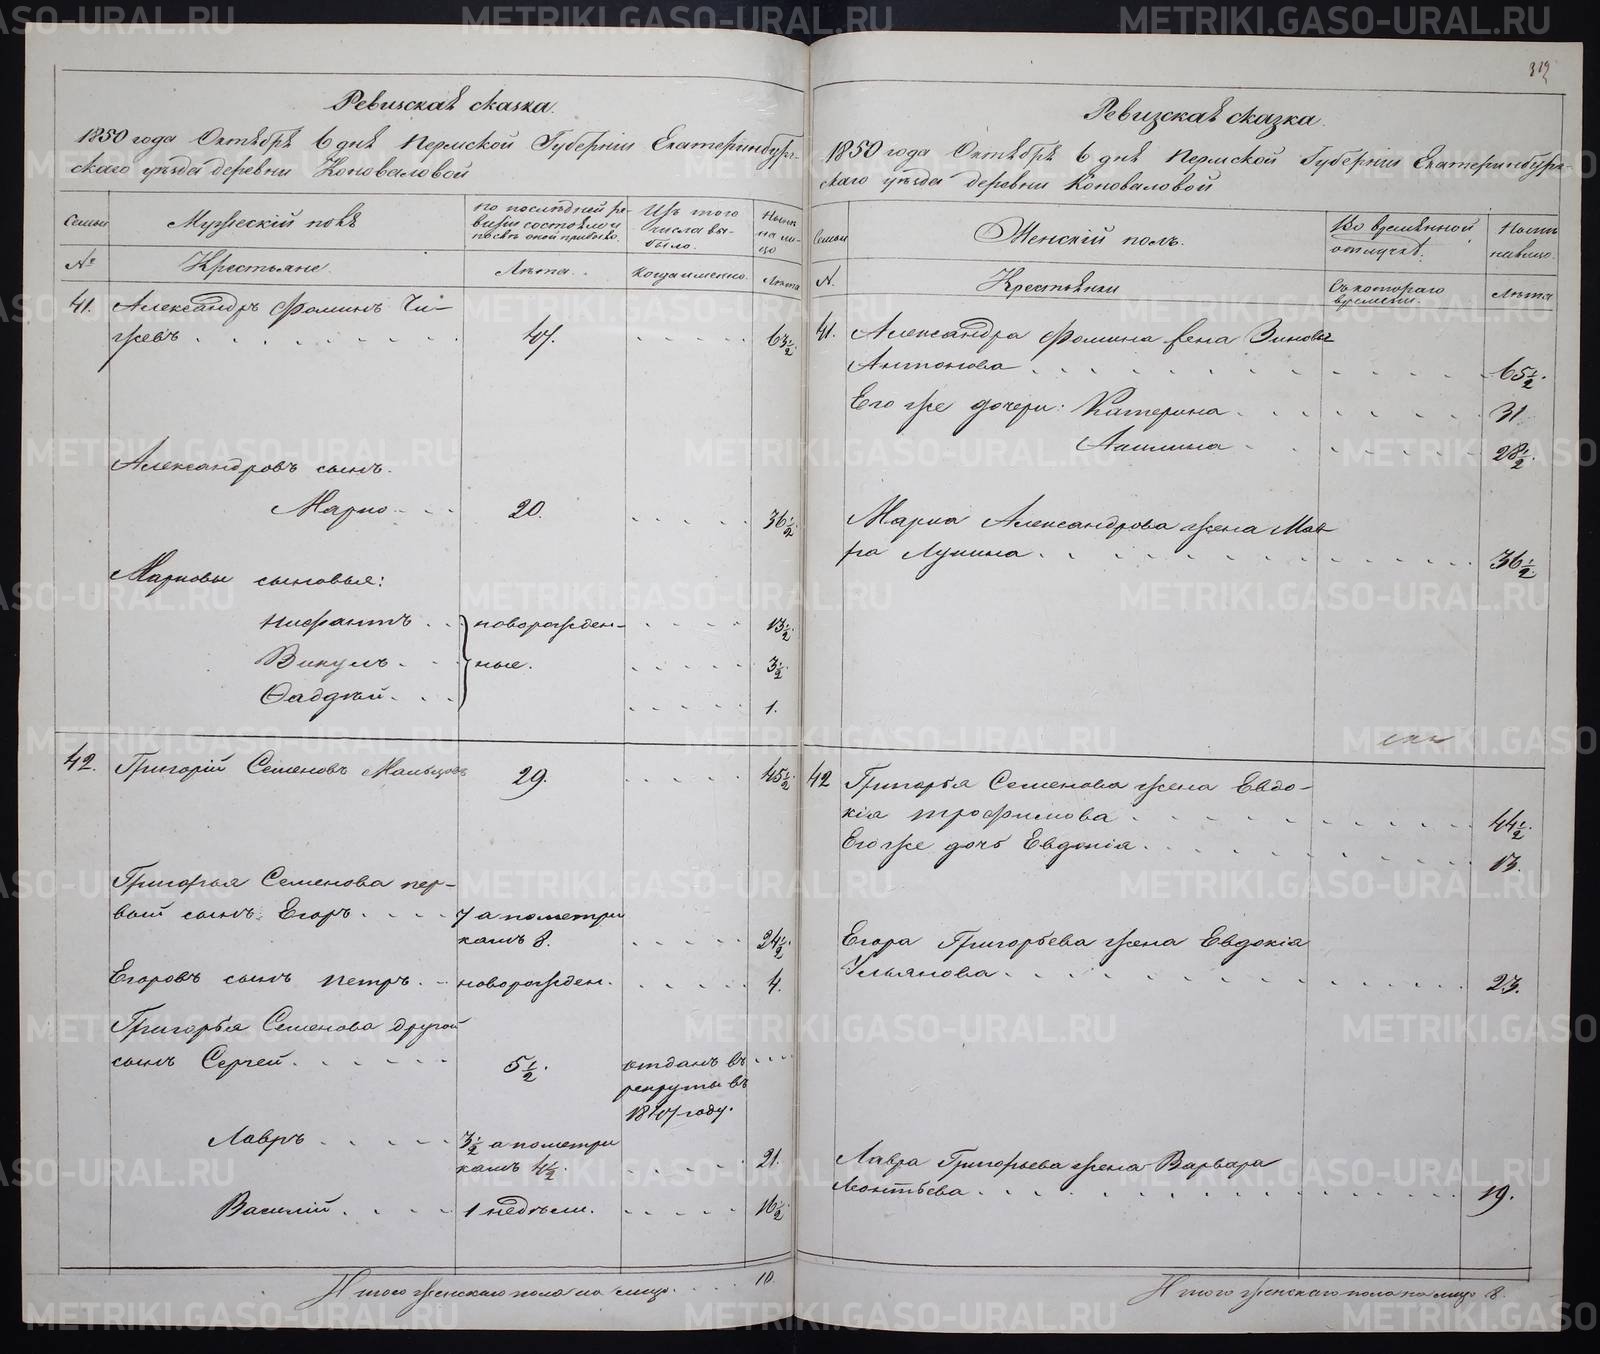 319
Ревизская сказка.
1850 года Октября 6 дня Пермской Губернии Екатеринбург-
скаго уезда деревни Коноваловой
Семьи
Мужескій полъ
По последней ре-
визіи состояло и
после оной прибыло.
Изъ того
числа вы-
было.
Ныне
на ли-
цо
№
Крестьяне.
Лета.
когда именно.
Лета
41. Александръ Фоминъ Чи-
жевъ 47. 63½
Александровъ сынъ.
Марко 20. 36½
Марковы сыновья:
Нифантъ новорожден- 13½
Викулъ ные. 3½
Фаддѣй 1.
42. Григорій Семеновъ Мальцовъ 29. 45½
Григорья Семенова пер-
вый сынъ Егоръ 7 а по метри
камъ 8. 24½
Егоровъ сынъ Петръ новорожден. 4.
Григорья Семенова другой
сынъ Сергей 5½. отданъ въ
рекруты въ
1847 году.
Лавръ 3½ а по метри
камъ 4½. 21.
Василій 1 недели. 16½
Итого женскаго пола на лицо 10.
Ревизская сказка.
1850 года Октября 6 дня Пермской Губерніи Екатеринбург-
скаго уезда деревни Коноваловой
Семьи
Женскій полъ.
Во временной
отлучке.
Ныне
на лицо.
№
Крестьянки
Съ котораго
времени.
Лета
41. Александра Фомина жена Зиновья
Антонова 65½.
Его же дочери: Катерина 31.
Акилина 28½.
Марка Александрова жена Мав
ра Лукина 36½.
42 Григорья Семенова жена Евдо-
кія Трофимова 44½.
Его же дочь Евдокія 13.
Егора Григорьева жена Евдокія
Ульянова 23.
Лавра Григорьева жена Варвара
Леонтьева 19.
Итого женскаго пола на лицо 8.
METRIKI.GASO-URAL.RU